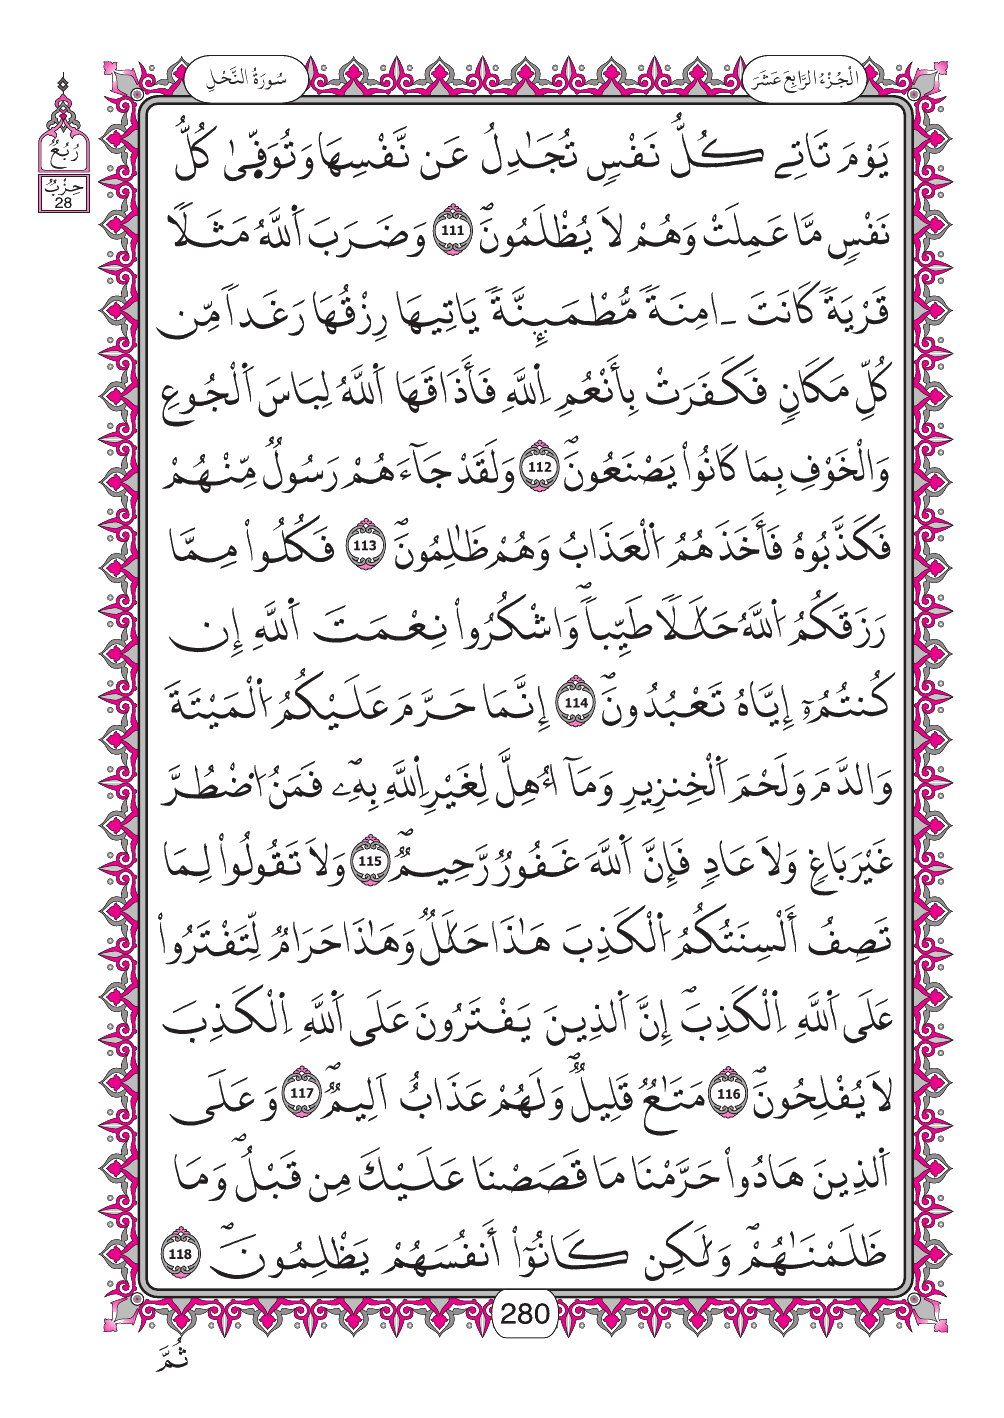 سُورَةُ النَّحْلِ
الْجُزْءُ الرَّابِعَ عَشَرَ
رُبُعُ
حِزْبُ
28
يَوْمَ تَاتِے كُلُّ نَفْسٖ تُجَٰدِلُ عَن نَّفْسِهَا وَتُوَفّ۪يٰ كُلُّ
نَفْسٖ مَّا عَمِلَتْ وَهُمْ لَا يُظْلَمُونَۖ 111 وَضَرَبَ اَ۬للَّهُ مَثَلاٗ
قَرْيَةٗ كَانَتَ ـ امِنَةٗ مُّطْمَئِنَّةٗ يَاتِيهَا رِزْقُهَا رَغَداٗ مِّن
كُلِّ مَكَانٖ فَكَفَرَتْ بِأَنْعُمِ اِ۬للَّهِ فَأَذَاقَهَا اَ۬للَّهُ لِبَاسَ اَ۬لْجُوعِ
وَالْخَوْفِ بِمَا كَانُواْ يَصْنَعُونَۖ 112 وَلَقَدْ جَآءَهُمْ رَسُولٞ مِّنْهُمْ
فَكَذَّبُوهُ فَأَخَذَهُمُ اُ۬لْعَذَابُ وَهُمْ ظَٰلِمُونَۖ 113 فَكُلُواْ مِمَّا
رَزَقَكُمُ اُ۬للَّهُ حَلَٰلاٗ طَيِّباٗۖ وَاشْكُرُواْ نِعْمَتَ اَ۬للَّهِ إِن
كُنتُمُۥٓ إِيَّاهُ تَعْبُدُونَۖ 114 إِنَّمَا حَرَّمَ عَلَيْكُمُ اُ۬لْمَيْتَةَ
وَالدَّمَ وَلَحْمَ اَ۬لْخِنزِيرِ وَمَآ أُهِلَّ لِغَيْرِ اِ۬للَّهِ بِهِۦۖ فَمَنُ اُ۟ضْطُرَّ
غَيْرَ بَاغٖ وَلَا عَادٖ فَإِنَّ اَ۬للَّهَ غَفُورٞ رَّحِيمٞۖ 115 وَلَا تَقُولُواْ لِمَا
تَصِفُ أَلْسِنَتُكُمُ اُ۬لْكَذِبَ هَٰذَا حَلَٰلٞ وَهَٰذَا حَرَامٞ لِّتَفْتَرُواْ
عَلَي اَ۬للَّهِ اِ۬لْكَذِبَۖ إِنَّ اَ۬لذِينَ يَفْتَرُونَ عَلَي اَ۬للَّهِ اِ۬لْكَذِبَ
لَا يُفْلِحُونَۖ 116 مَتَٰعٞ قَلِيلٞۖ وَلَهُمْ عَذَابٌ اَلِيمٞۖ 117 وَعَلَي
اَ۬لذِينَ هَادُواْ حَرَّمْنَا مَا قَصَصْنَا عَلَيْكَ مِن قَبْلُۖ وَمَا
ظَلَمْنَٰهُمْۖ وَلَٰكِن كَانُوٓاْ أَنفُسَهُمْ يَظْلِمُونَۖ 118
280
ثُمَّ